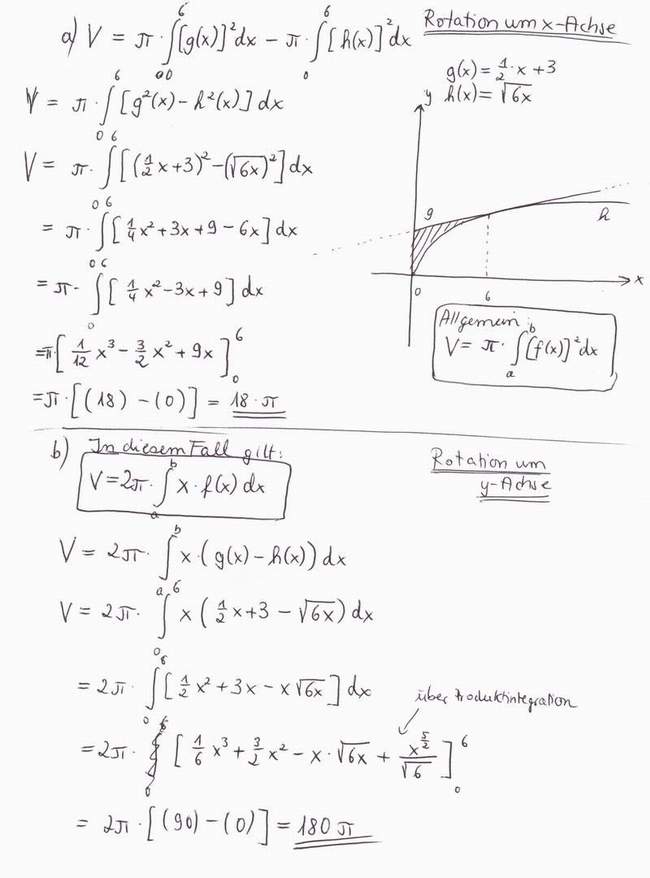 a) V = π · ∫₀⁶ [g(x)]² dx − π · ∫₀⁶ [h(x)]² dx
Rotation um x-Achse
g(x) = 1/2 · x + 3
h(x) = √(6x)
V = π · ∫₀⁶ [g²(x) − h²(x)] dx
V = π · ∫₀⁶ [(1/2 x + 3)² − (√(6x))²] dx
= π · ∫₀⁶ [1/4 x² + 3x + 9 − 6x] dx
= π · ∫₀⁶ [1/4 x² − 3x + 9] dx
= π [1/12 x³ − 3/2 x² + 9x]₀⁶
= π · [(18) − (0)] = 18 · π
y
g
h
x
0
6
Allgemein:
V = π · ∫ₐᵇ [f(x)]² dx
b) In diesem Fall gilt:
V = 2π · ∫ₐᵇ x · f(x) dx
Rotation um
y-Achse
V = 2π · ∫ₐᵇ x · (g(x) − h(x)) dx
V = 2π · ∫₀⁶ x (1/2 x + 3 − √(6x)) dx
= 2π · ∫₀⁶ [1/2 x² + 3x − x√(6x)] dx
über Produktintegration
= 2π · [1/6 x³ + 3/2 x² − x · √(6x) + x^(5/2)/√6]₀⁶
= 2π · [(90) − (0)] = 180 π